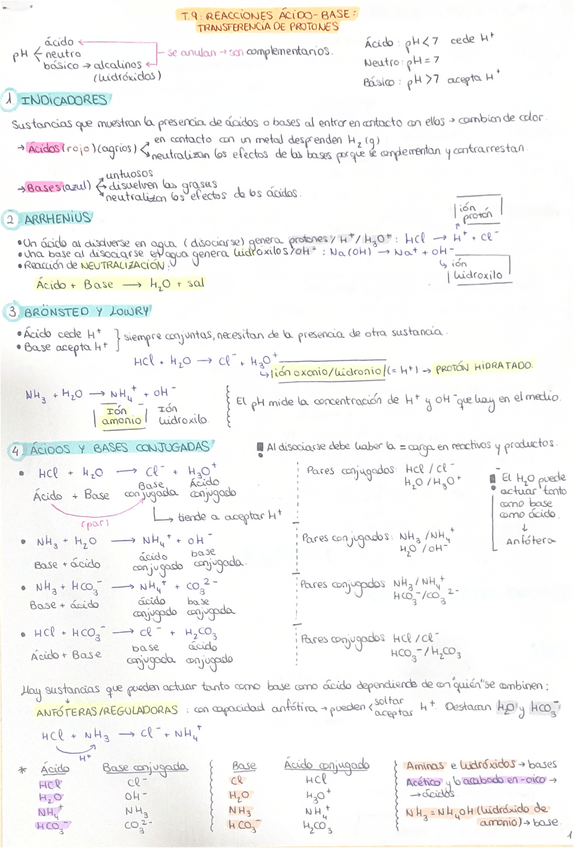 T.9: REACCIONES ÁCIDO-BASE:
TRANSFERENCIA DE PROTONES
pH
ácido
neutro
básico → alcalinos
(hidróxidos)
se anulan → son complementarios.
Ácido: pH<7 cede H⁺
Neutro: pH = 7
Básico: pH>7 acepta H⁺
1 INDICADORES
Sustancias que muestran la presencia de ácidos o bases al entrar en contacto con ellos → cambian de color.
→ Ácidos (rojo) (agrios)
en contacto con un metal desprenden H₂(g)
neutralizan los efectos de las bases porque se complementan y contrarrestan
→ Bases (azul)
untuosos
disuelven las grasas
neutralizan los efectos de los ácidos.
2 ARRHENIUS
ión protón
• Un ácido al disolverse en agua (disociarse) genera protones / H⁺ / H₃O⁺ : HCl → H⁺ + Cl⁻
• Una base al disociarse en agua genera hidroxilos / OH⁻ : Na(OH) → Na⁺ + OH⁻
↳ ión hidroxilo
• Reacción de NEUTRALIZACIÓN:
Ácido + Base → H₂O + sal
3 BRÖNSTED Y LOWRY
• Ácido cede H⁺
• Base acepta H⁺
siempre conjuntas, necesitan de la presencia de otra sustancia.
HCl + H₂O → Cl⁻ + H₃O⁺
↳ ión oxonio/hidronio (= H⁺) → PROTÓN HIDRATADO.
NH₃ + H₂O → NH₄⁺ + OH⁻
Ión amonio
Ión hidroxilo
El pH mide la concentración de H⁺ y OH⁻ que hay en el medio.
4 ÁCIDOS Y BASES CONJUGADAS
Al disociarse debe haber la = carga en reactivos y productos.
• HCl + H₂O → Cl⁻ + H₃O⁺
Ácido + Base
Base conjugada
Ácido conjugado
(par)
↳ tiende a aceptar H⁺
Pares conjugados: HCl / Cl⁻
H₂O / H₃O⁺
El H₂O puede
actuar tanto
como base
como ácido.
↓
Anfótera
• NH₃ + H₂O → NH₄⁺ + OH⁻
Base + ácido
ácido conjugado
base conjugada.
Pares conjugados: NH₃ / NH₄⁺
H₂O / OH⁻
• NH₃ + HCO₃⁻ → NH₄⁺ + CO₃²⁻
Base + ácido
ácido conjugado
base conjugada
Pares conjugados NH₃ / NH₄⁺
HCO₃⁻ / CO₃²⁻
• HCl + HCO₃⁻ → Cl⁻ + H₂CO₃
Ácido + Base
base conjugada
ácido conjugado
Pares conjugados HCl / Cl⁻
HCO₃⁻ / H₂CO₃
Hay sustancias que pueden actuar tanto como base como ácido dependiendo de con "quién" se combinen:
ANFÓTERAS/REGULADORAS : con capacidad anfótira → pueden
soltar
aceptar
H⁺. Destacan H₂O y HCO₃⁻
HCl + NH₃ → Cl⁻ + NH₄⁺
H⁺
* Ácido Base conjugada
HCl Cl⁻
H₂O OH⁻
NH₄⁺ NH₃
HCO₃⁻ CO₃²⁻
Base Ácido conjugado
Cl⁻ HCl
H₂O H₃O⁺
NH₃ NH₄⁺
HCO₃⁻ H₂CO₃
Aminas e hidróxidos → bases
Acético y lo acabado en -oico →
→ ácidos
NH₃ = NH₄OH (hidróxido de
amonio) → base.
1